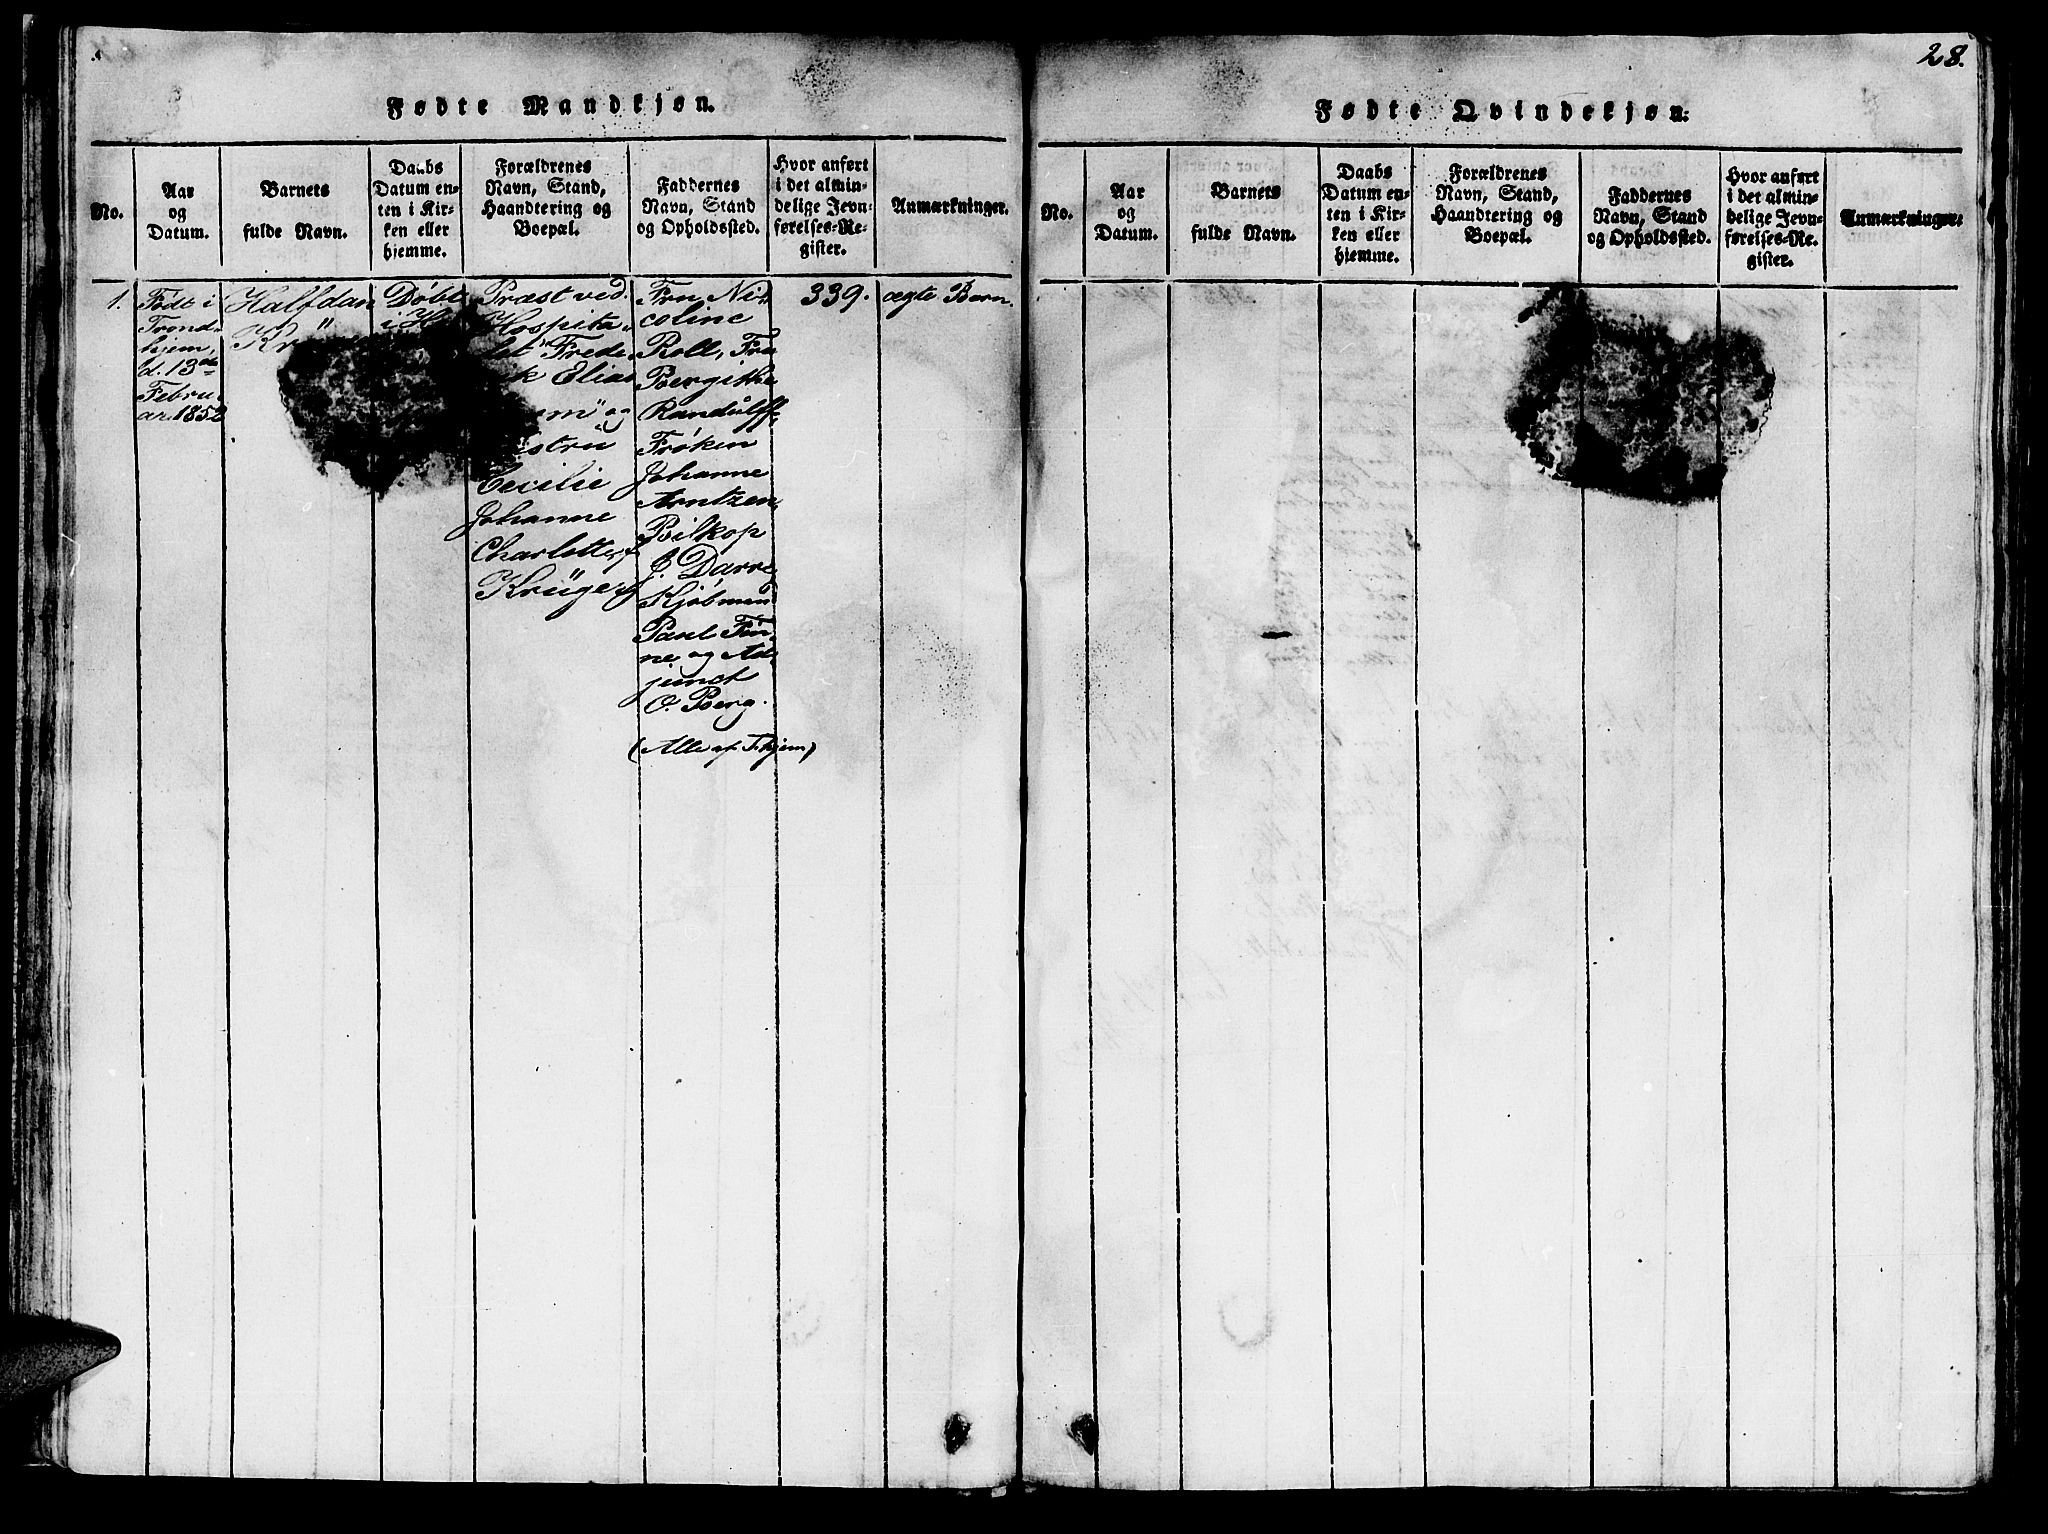 28.
Fødte Mandkjøn.
No.
Aar
og
Datum.
Barnets
fulde Navn.
Daabs
Datum en-
ten i Kir-
ken eller
hjemme.
Forældrenes
Navn, Stand,
Haandtering og
Boepæl.
Faddernes
Navn, Stand
og Opholdssted.
Hvor anført
i det almin-
delige Jevn-
førelses-Re-
gister.
Anmærkninger.
1.
Født i
Trond-
hjem,
d. 13de
Febru-
ar 1852
Halfdan
Døbt
Præst ved
Hospita-
let Frede-
Elias
og
Cecilie
Johanne
Charlotte, f.
Krüger
Fru Ni-
coline
Roll, Fru
Bergithe
Randulff
Frøken
Johanne
Arntzen,
Biskop
J. Darre,
Kjøbmand
Paul Fin-
ne og Ad-
junct
O. Berg.
(Alle af T.hjem)
339.
ægte Barn.
Fødte Qvindekjøn.
No.
Aar
og
Datum.
Barnets
fulde Navn.
Daabs
Datum en-
ten i Kir-
ken eller
hjemme.
Forældrenes
Navn, Stand,
Haandtering og
Boepæl.
Faddernes
Navn, Stand
og Opholdssted.
Hvor anført
i det almin-
delige Jevn-
førelses-Re-
gister.
Anmærkninger.